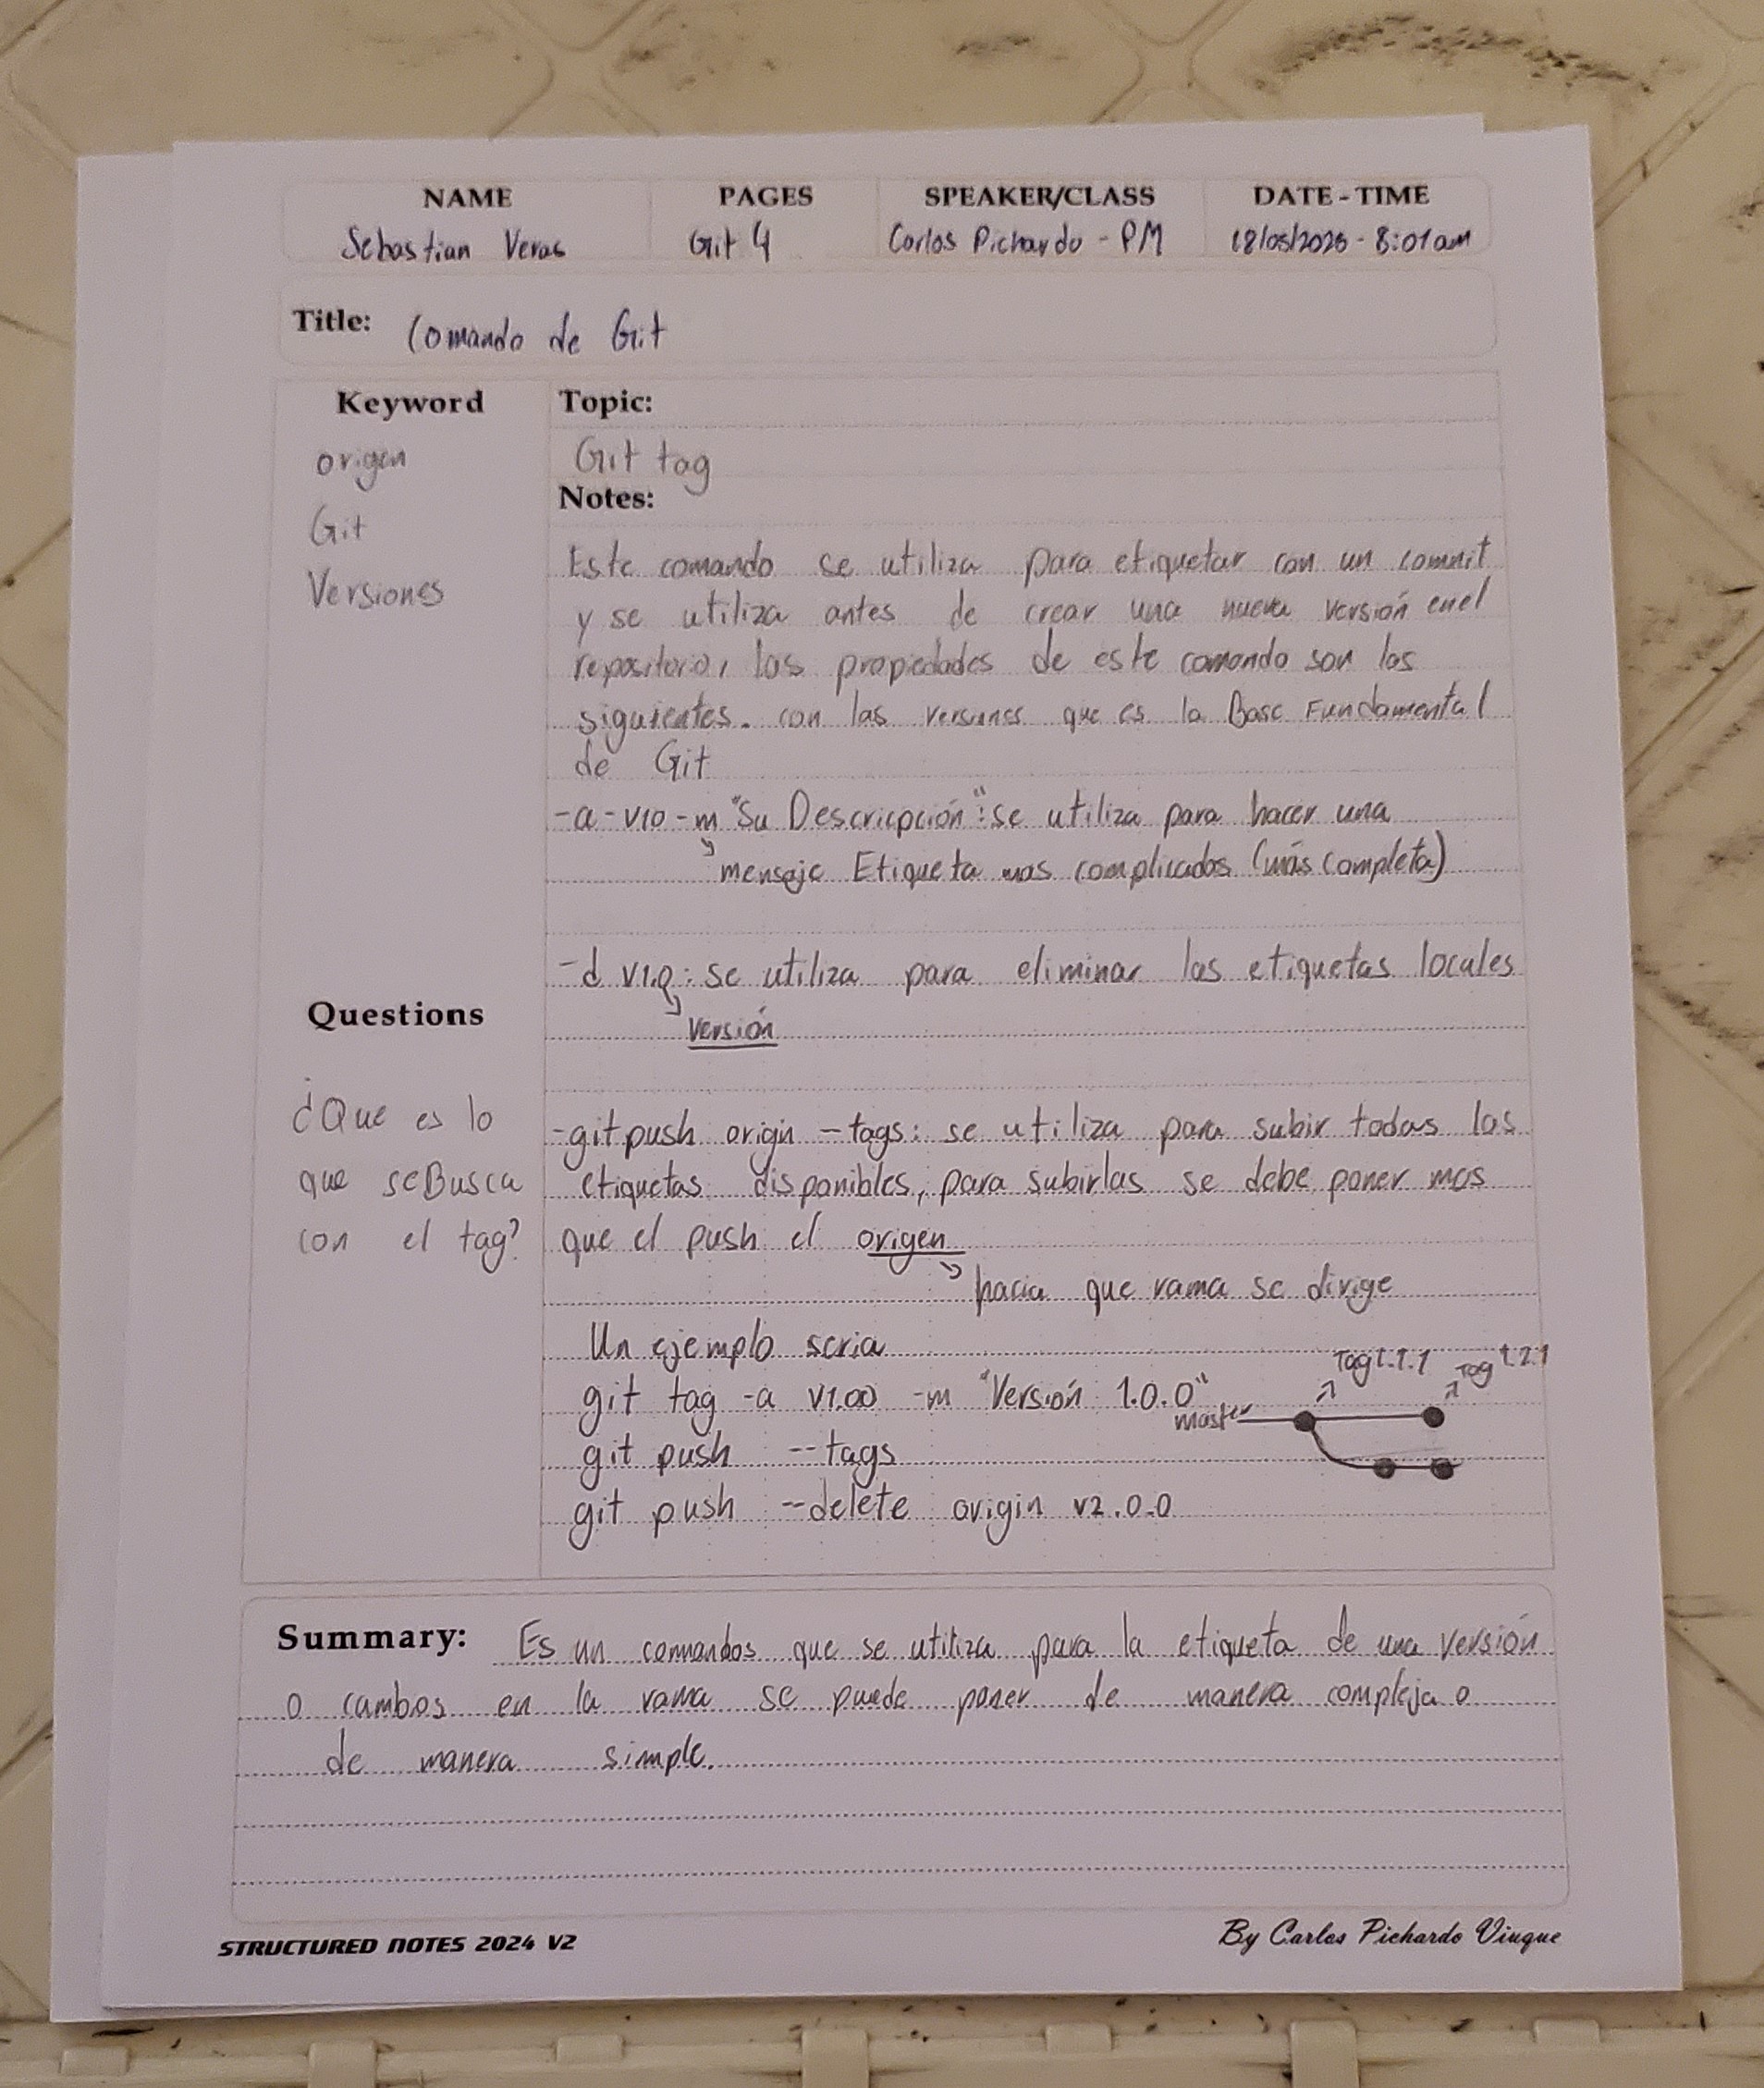 NAME PAGES SPEAKER/CLASS DATE - TIME
Sebastian Veras Git 4 Carlos Pichardo - PM 18/05/2025 - 8:01am
Title: Comando de Git
Keyword
origen
Git
Versiones
Topic:
Git tag
Notes:
Este comando se utiliza para etiquetar con un commit
y se utiliza antes de crear una nueva versión en el
repositorio, las propiedades de este comando son las
siguientes. con las versiones que es la Base Fundamental
de Git
-a -v10 -m "Su Descricpción": se utiliza para hacer una
mensaje Etiqueta mas complicados (más completa)
-d v1.0: se utiliza para eliminar las etiquetas locales
versión
Questions
¿Que es lo
que se Busca
con el tag?
-git push origin --tags: se utiliza para subir todas las
etiquetas disponibles, para subirlas se debe poner mas
que el push el origen
hacia que rama se dirige
Un ejemplo seria
git tag -a v1.00 -m "Versión 1.0.0"
git push --tags
git push --delete origin v2.0.0
master
Tag 1.1.1 Tag 1.2.1
Summary: Es un comandos que se utiliza para la etiqueta de una versión
o cambos en la rama se puede poner de manera compleja o
de manera simple.
STRUCTURED NOTES 2024 V2
By Carlos Pichardo Viuque